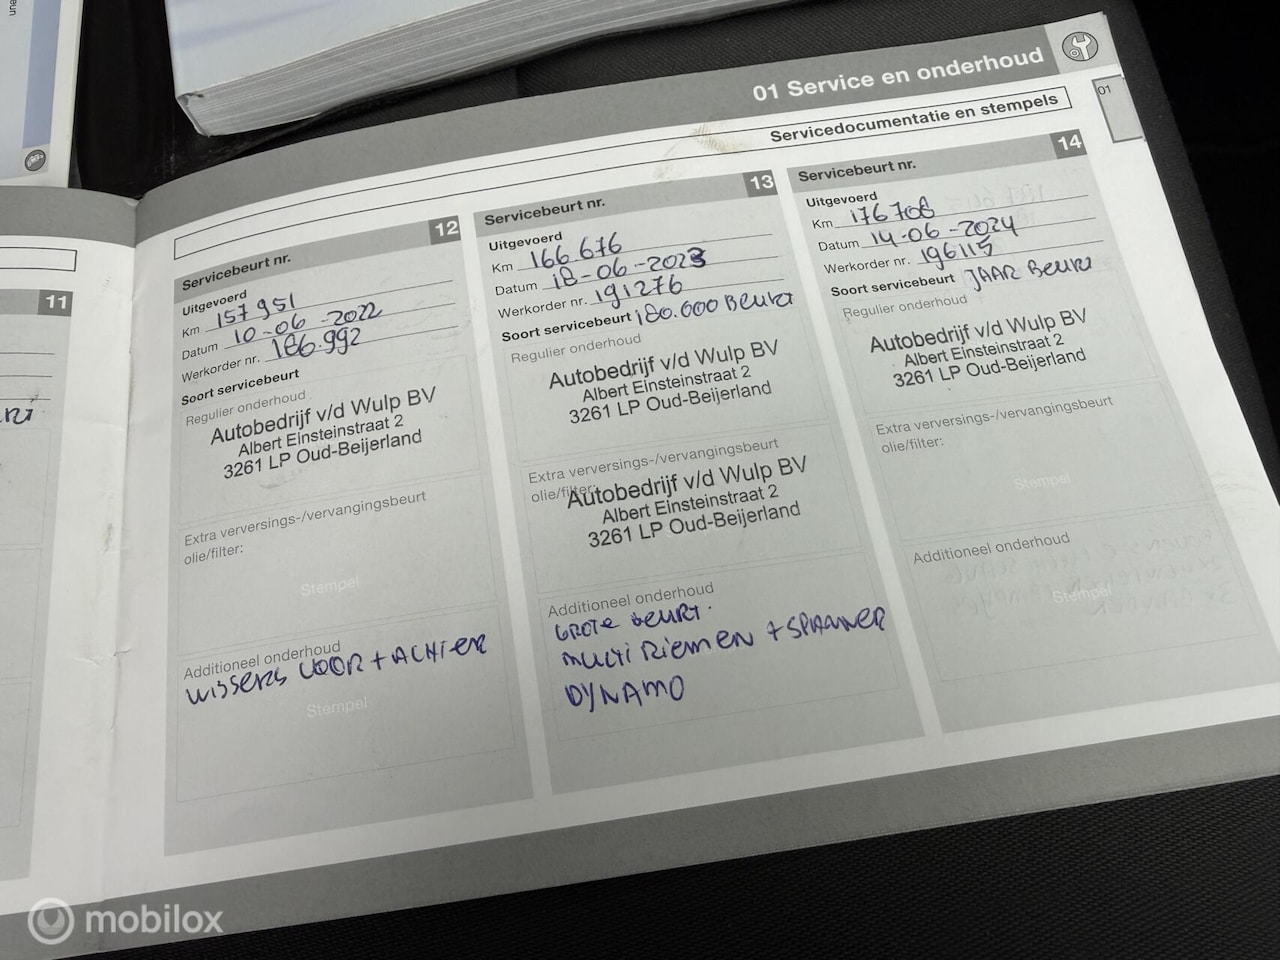 01 Service en onderhoud
01
Servicedocumentatie en stempels
11
Servicebeurt nr. 12
Uitgevoerd
Km 157951
Datum 10-06-2022
Werkorder nr. 186.992
Soort servicebeurt
Regulier onderhoud
Autobedrijf v/d Wulp BV
Albert Einsteinstraat 2
3261 LP Oud-Beijerland
Extra verversings-/vervangingsbeurt
olie/filter:
Stempel
Additioneel onderhoud
WISSERS VOOR + ACHTER
Stempel
Servicebeurt nr. 13
Uitgevoerd
Km 166.676
Datum 18-06-2023
Werkorder nr. 191276
Soort servicebeurt 180.000 Beurt
Regulier onderhoud
Autobedrijf v/d Wulp BV
Albert Einsteinstraat 2
3261 LP Oud-Beijerland
Extra verversings-/vervangingsbeurt
olie/filter:
Autobedrijf v/d Wulp BV
Albert Einsteinstraat 2
3261 LP Oud-Beijerland
Additioneel onderhoud
GROTE BEURT.
MULTI RIEMEN + SPANNER
DYNAMO
Servicebeurt nr. 14
Uitgevoerd
Km 176708
Datum 14-06-2024
Werkorder nr. 196115
Soort servicebeurt JAAR Beurt
Regulier onderhoud
Autobedrijf v/d Wulp BV
Albert Einsteinstraat 2
3261 LP Oud-Beijerland
Extra verversings-/vervangingsbeurt
olie/filter:
Stempel
Additioneel onderhoud
Stempel
mobilox